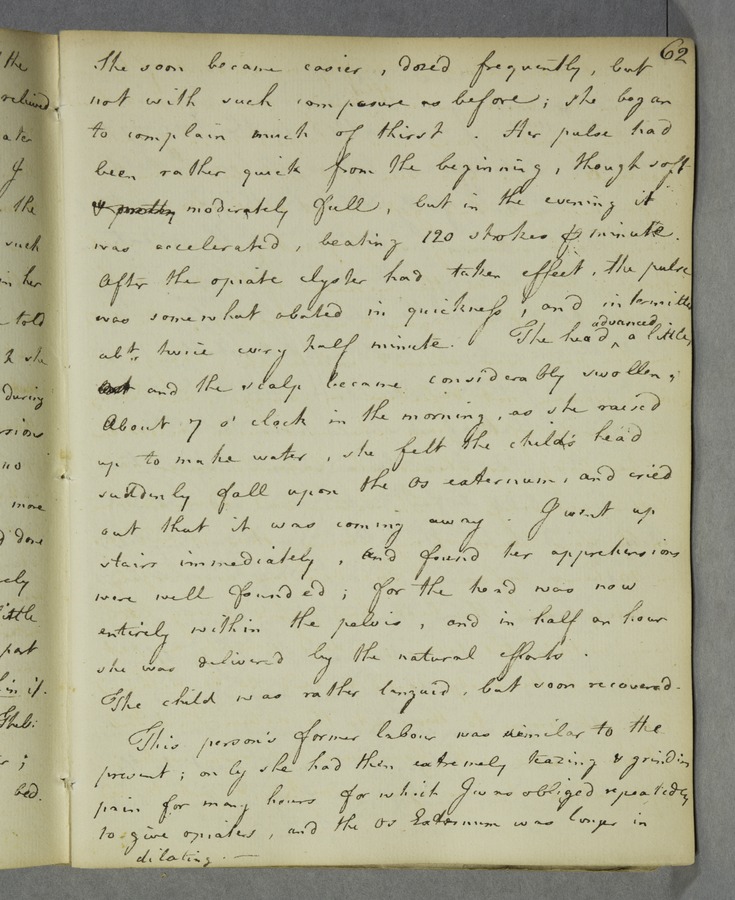 62
She soon became easier, dozed frequently, but
not with such composure as before; she began
to complain much of thirst. Her pulse had
been rather quick from the beginning, though soft
moderately full, but in the evening it
was accelerated, beating 120 strokes ⅌ minute.
After the opiate clyster had taken effect, the pulse
was somewhat abated in quickness, and intermitted
abt. twice every half minute. The head advanced a little,
and the scalp became considerably swollen;
About 7 o'clock in the morning, as she raised
up to make water, she felt the child's head
suddenly fall upon the os externum, and cried
out that it was coming away. I went up
stairs immediately, and found her apprehensions
were well founded; for the head was now
entirely within the pelvis, and in half an hour
she was delivered by the natural efforts.
The child was rather languid, but soon recovered.
This person's former labour was similar to the
present; only she had then extremely teazing & grinding
pain for many hours for which I was obliged repeatedly
to give opiates, and the os Externum was longer in
dilating. —
the
relieved
ater
If
the
such
in her
told
she
during
no
more
done
ely
little
part
in it.
bed.